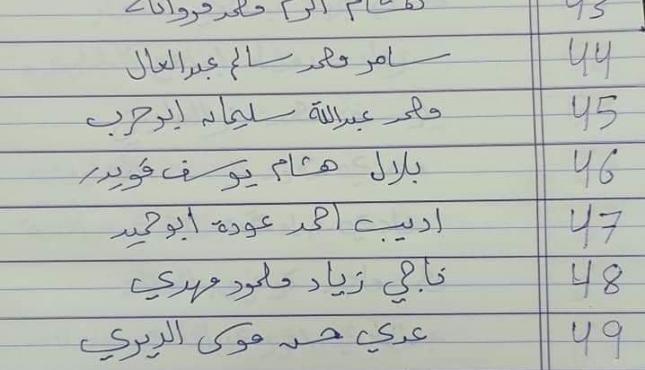 هشام اكرم محمد فروانة 43
سامر محمد سالم عبدالعال 44
محمد عبدالله سليمان ابوحرب 45
بلال هشام يوسف قويدر 46
اديب احمد عودة ابوحميد 47
ناجي زياد محمود مهدي 48
عدي حسن موسى الديري 49